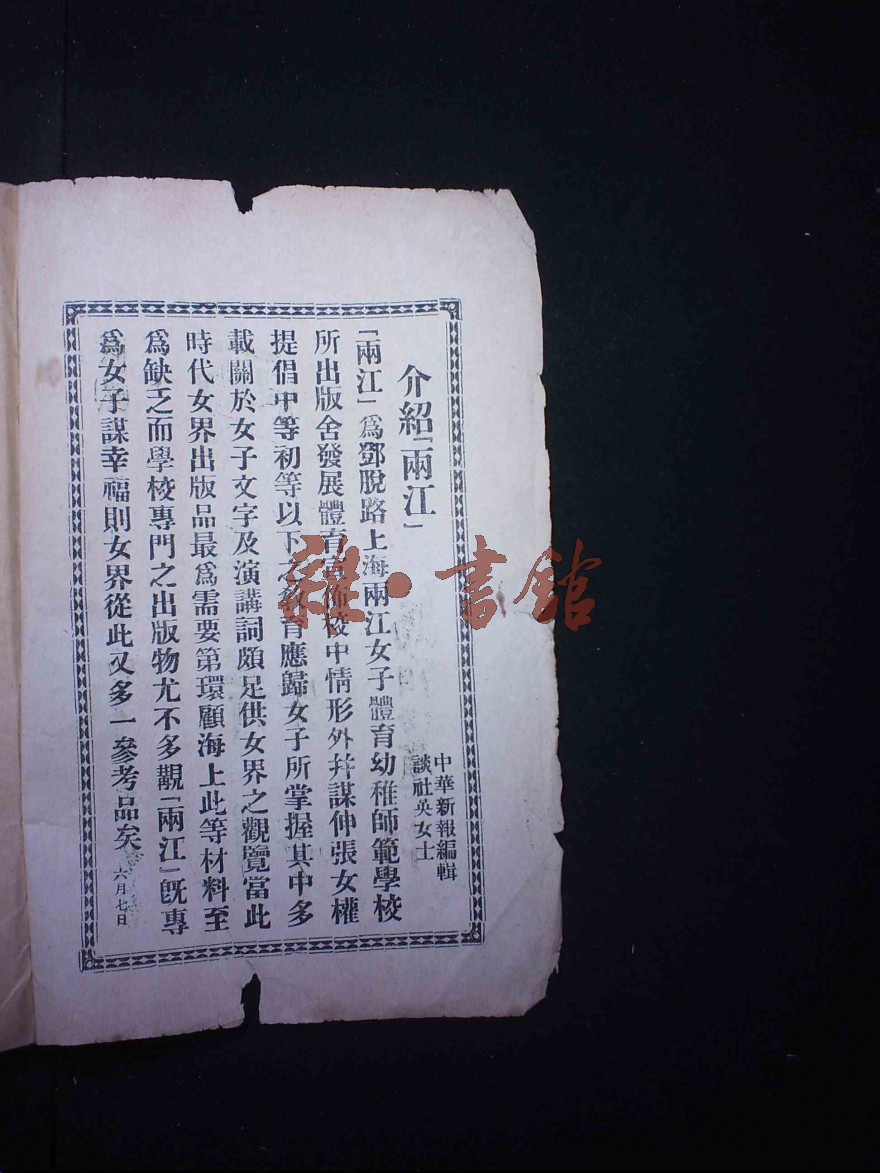 介紹「兩江」
中華新報編輯
談社英女士
「兩江」爲鄧脫路上海兩江女子體育幼稚師範學校
所出版舍發展體育宣佈校中情形外幷謀伸張女權
提倡中等初等以下之敎育應歸女子所掌握其中多
載關於女子文字及演講詞頗足供女界之觀覽當此
時代女界出版品最爲需要第環顧海上此等材料至
爲缺乏而學校專門之出版物尤不多觀「兩江」旣專
爲女子謀幸福則女界從此又多一參考品矣 六月七日
雜·書館